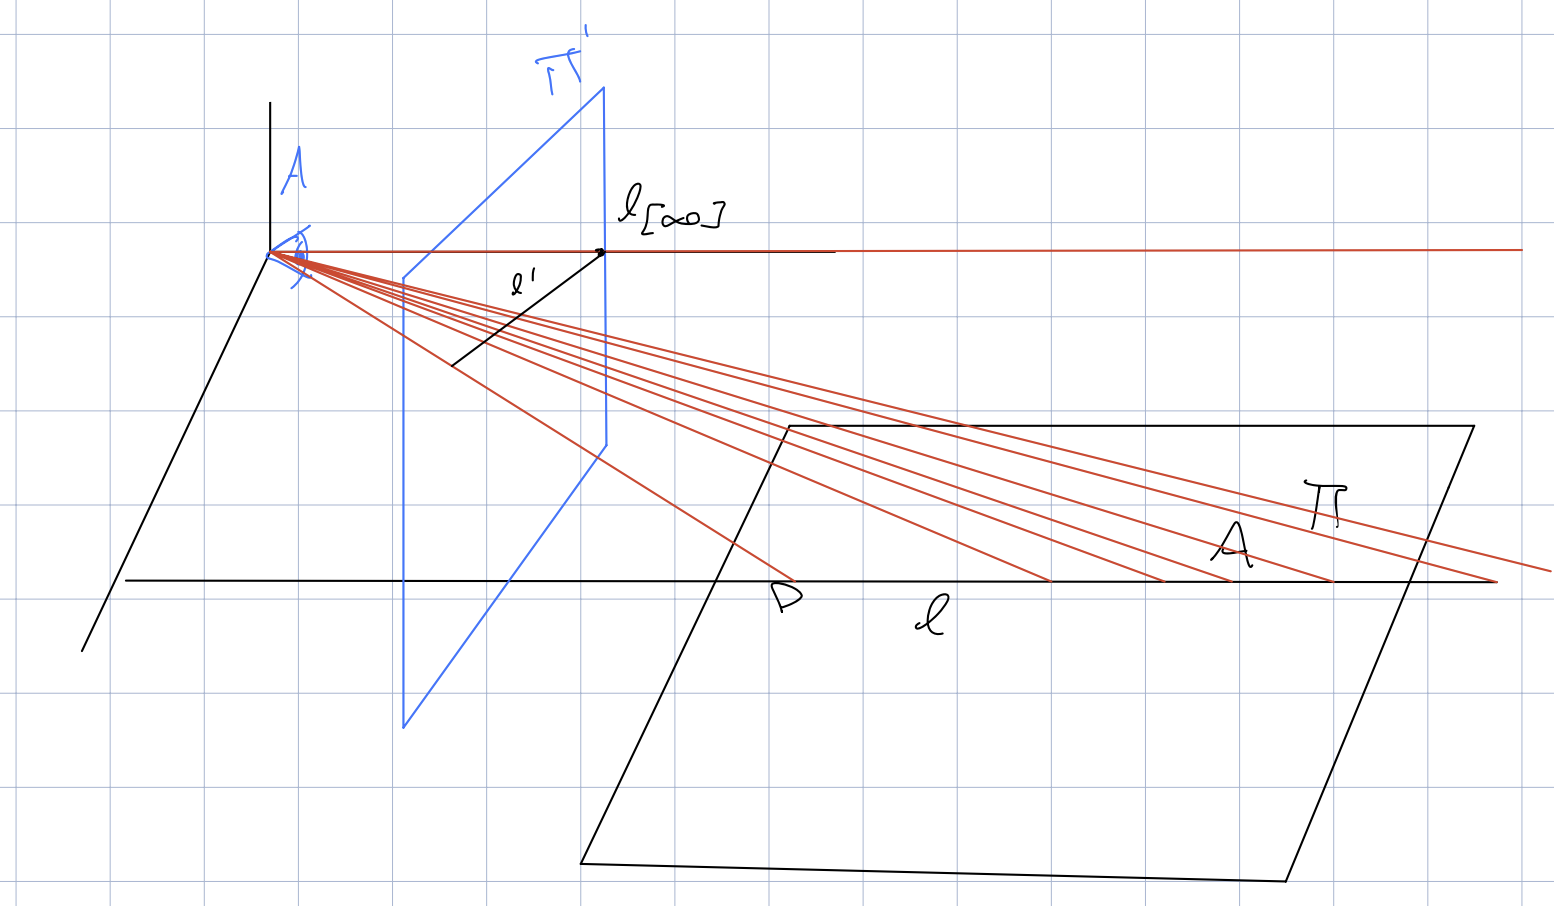 Π'
A
l[∞]
l'
Π
A
P
l